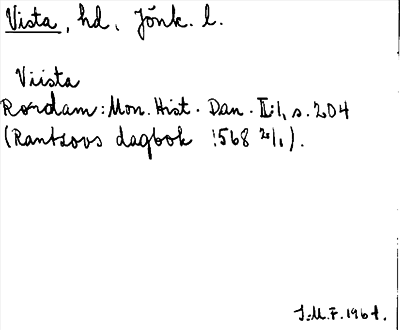 Vista, hd, Jönk. l.
Viista
Rørdam: Mon. Hist. Dan. II:1, s. 204
(Rantzovs dagbok 1568 21/1).
J.M.F. 1964.